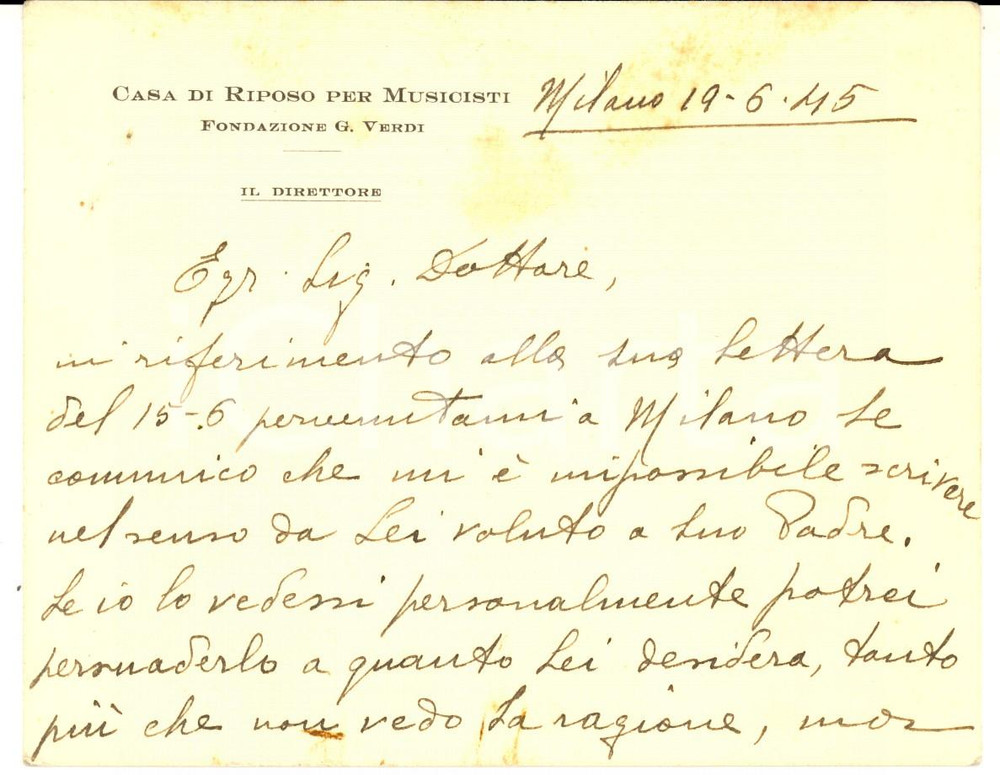 CASA DI RIPOSO PER MUSICISTI
FONDAZIONE G. VERDI
Milano 19-6-45
IL DIRETTORE
Egr. Sig. Dottore,
in riferimento alla sua lettera
del 15-6 pervenutami a Milano Le
comunico che mi è impossibile scrivere
nel senso da Lei voluto a suo Padre.
Se io lo vedessi personalmente potrei
persuaderlo a quanto Lei desidera, tanto
più che non vedo la ragione,